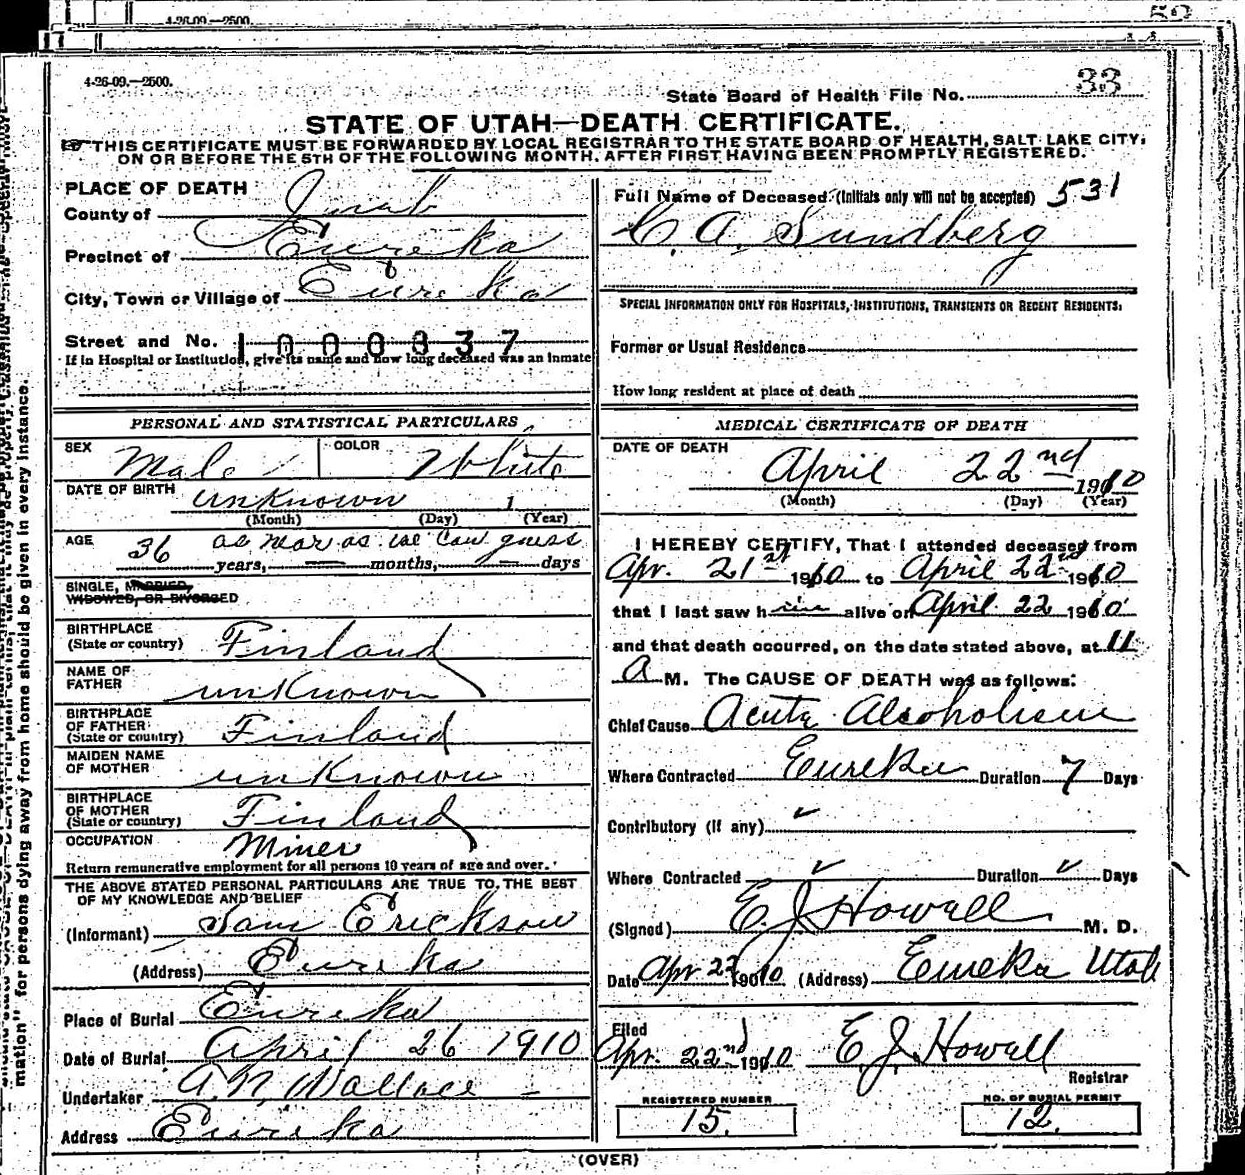 4-26-09.—2500.
52
17
4-26-09.—2500.
State Board of Health File No. 33
STATE OF UTAH—DEATH CERTIFICATE.
THIS CERTIFICATE MUST BE FORWARDED BY LOCAL REGISTRAR TO THE STATE BOARD OF HEALTH, SALT LAKE CITY,
ON OR BEFORE THE 5TH OF THE FOLLOWING MONTH, AFTER FIRST HAVING BEEN PROMPTLY REGISTERED.
PLACE OF DEATH
County of Juab
Precinct of Eureka
City, Town or Village of Eureka
Street and No. 1000337
If in Hospital or Institution, give its name and how long deceased was an inmate
PERSONAL AND STATISTICAL PARTICULARS
SEX Male COLOR White
DATE OF BIRTH unknown 1
(Month) (Day) (Year)
AGE 36 as near as we can guess
years, — months, — days
SINGLE, MARRIED,
WIDOWED, OR DIVORCED
BIRTHPLACE
(State or country) Finland
NAME OF
FATHER unknown
BIRTHPLACE
OF FATHER
(State or country) Finland
MAIDEN NAME
OF MOTHER unknown
BIRTHPLACE
OF MOTHER
(State or country) Finland
OCCUPATION Miner
Return remunerative employment for all persons 10 years of age and over.
THE ABOVE STATED PERSONAL PARTICULARS ARE TRUE TO THE BEST
OF MY KNOWLEDGE AND BELIEF
(Informant) Sam Erickson
(Address) Eureka
Place of Burial Eureka
Date of Burial April 26 1910
Undertaker A. N. Wallace
Address Eureka
Full Name of Deceased (Initials only will not be accepted) 531
C. A. Sundberg
SPECIAL INFORMATION ONLY FOR HOSPITALS, INSTITUTIONS, TRANSIENTS OR RECENT RESIDENTS:
Former or Usual Residence
How long resident at place of death
MEDICAL CERTIFICATE OF DEATH
DATE OF DEATH
April 22nd 1910
(Month) (Day) (Year)
I HEREBY CERTIFY, That I attended deceased from
Apr. 21st 1910 to April 22nd 1910
that I last saw him alive on April 22 1910
and that death occurred, on the date stated above, at 11
A M. The CAUSE OF DEATH was as follows:
Chief Cause Acute Alcoholism
Where Contracted Eureka Duration 7 Days
Contributory (if any)
Where Contracted Duration Days
(Signed) E. J. Howall M. D.
Date Apr 22 1910 (Address) Eureka Utah
Filed
Apr. 22nd 1910 E. J. Howall
Registrar
REGISTERED NUMBER
15.
NO. OF BURIAL PERMIT
12.
(OVER)
mation" for persons dying away from home should be given in every instance.